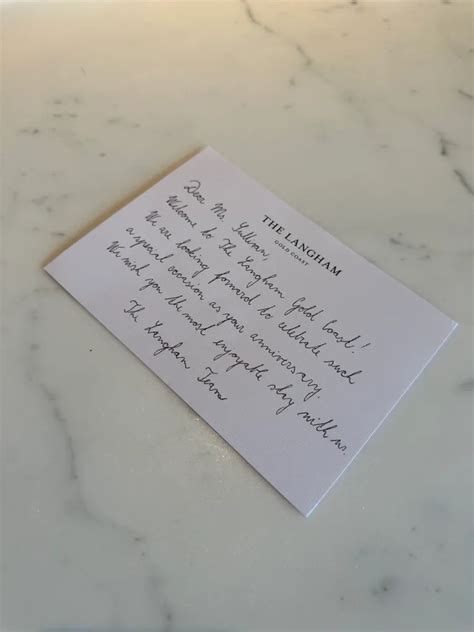 THE LANGHAM
GOLD COAST
Dear Ms. Sullivan,
Welcome to The Langham Gold Coast!
We are looking forward to celebrate such
a special occasion as your anniversary.
We wish you the most enjoyable stay with us.
The Langham Team